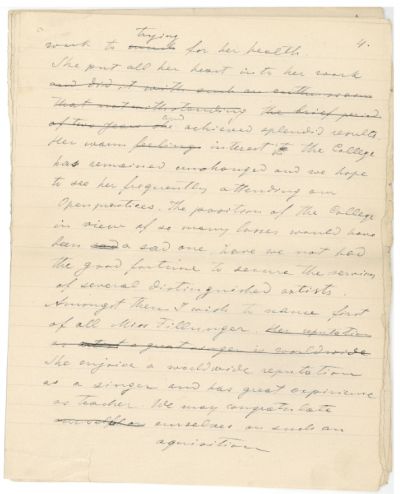 4.
trying
work to much for her health.
She put all her heart into her work
and did it with such an enthusiasm
that notwithstanding the brief period
of two years she and achieved splendid results.
Her warm feelings interest to the College
has remained unchanged and we hope
to see her frequently attending our
Openpractices. The position of the College
in view of so many losses would have
been sad a sad one, have we not had
the good fortune to secure the services
of several distinguished artists.
Amongst them I wish to name first
of all Miss Fillunger. Her reputation
as a great singer is worldwide
She enjoies a worldwide reputation
as a singer and has great experience
as teacher. We may congratulate
ourselves on such an
aquisition